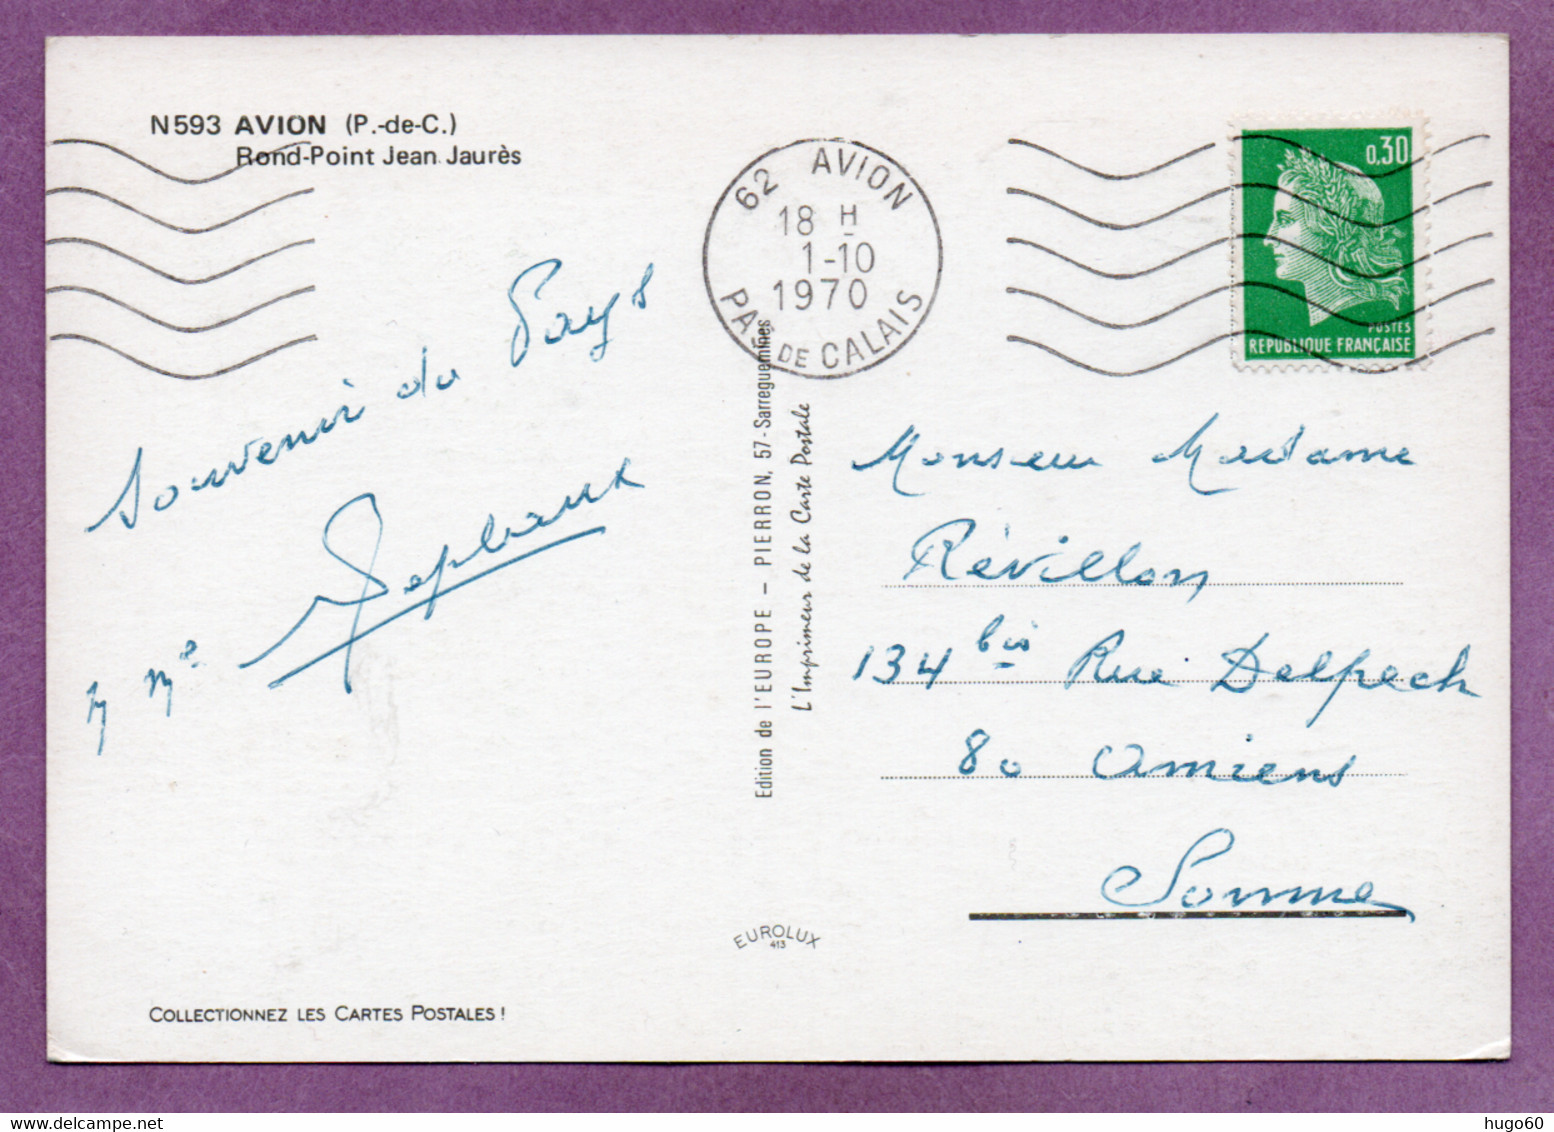 N593 AVION (P.-de-C.)
Rond-Point Jean Jaurès
62 AVION
18 H
1-10
1970
PAS DE CALAIS
0,30
POSTES
REPUBLIQUE FRANÇAISE
Souvenir du Pays
M Me
Edition de l'EUROPE – PIERRON, 57-Sarreguemines
L'Imprimeur de la Carte Postale
Monsieur Madame
Révillon
134 bis Rue Delpech
80 Amiens
Somme
EUROLUX
413
COLLECTIONNEZ LES CARTES POSTALES !
hugo60